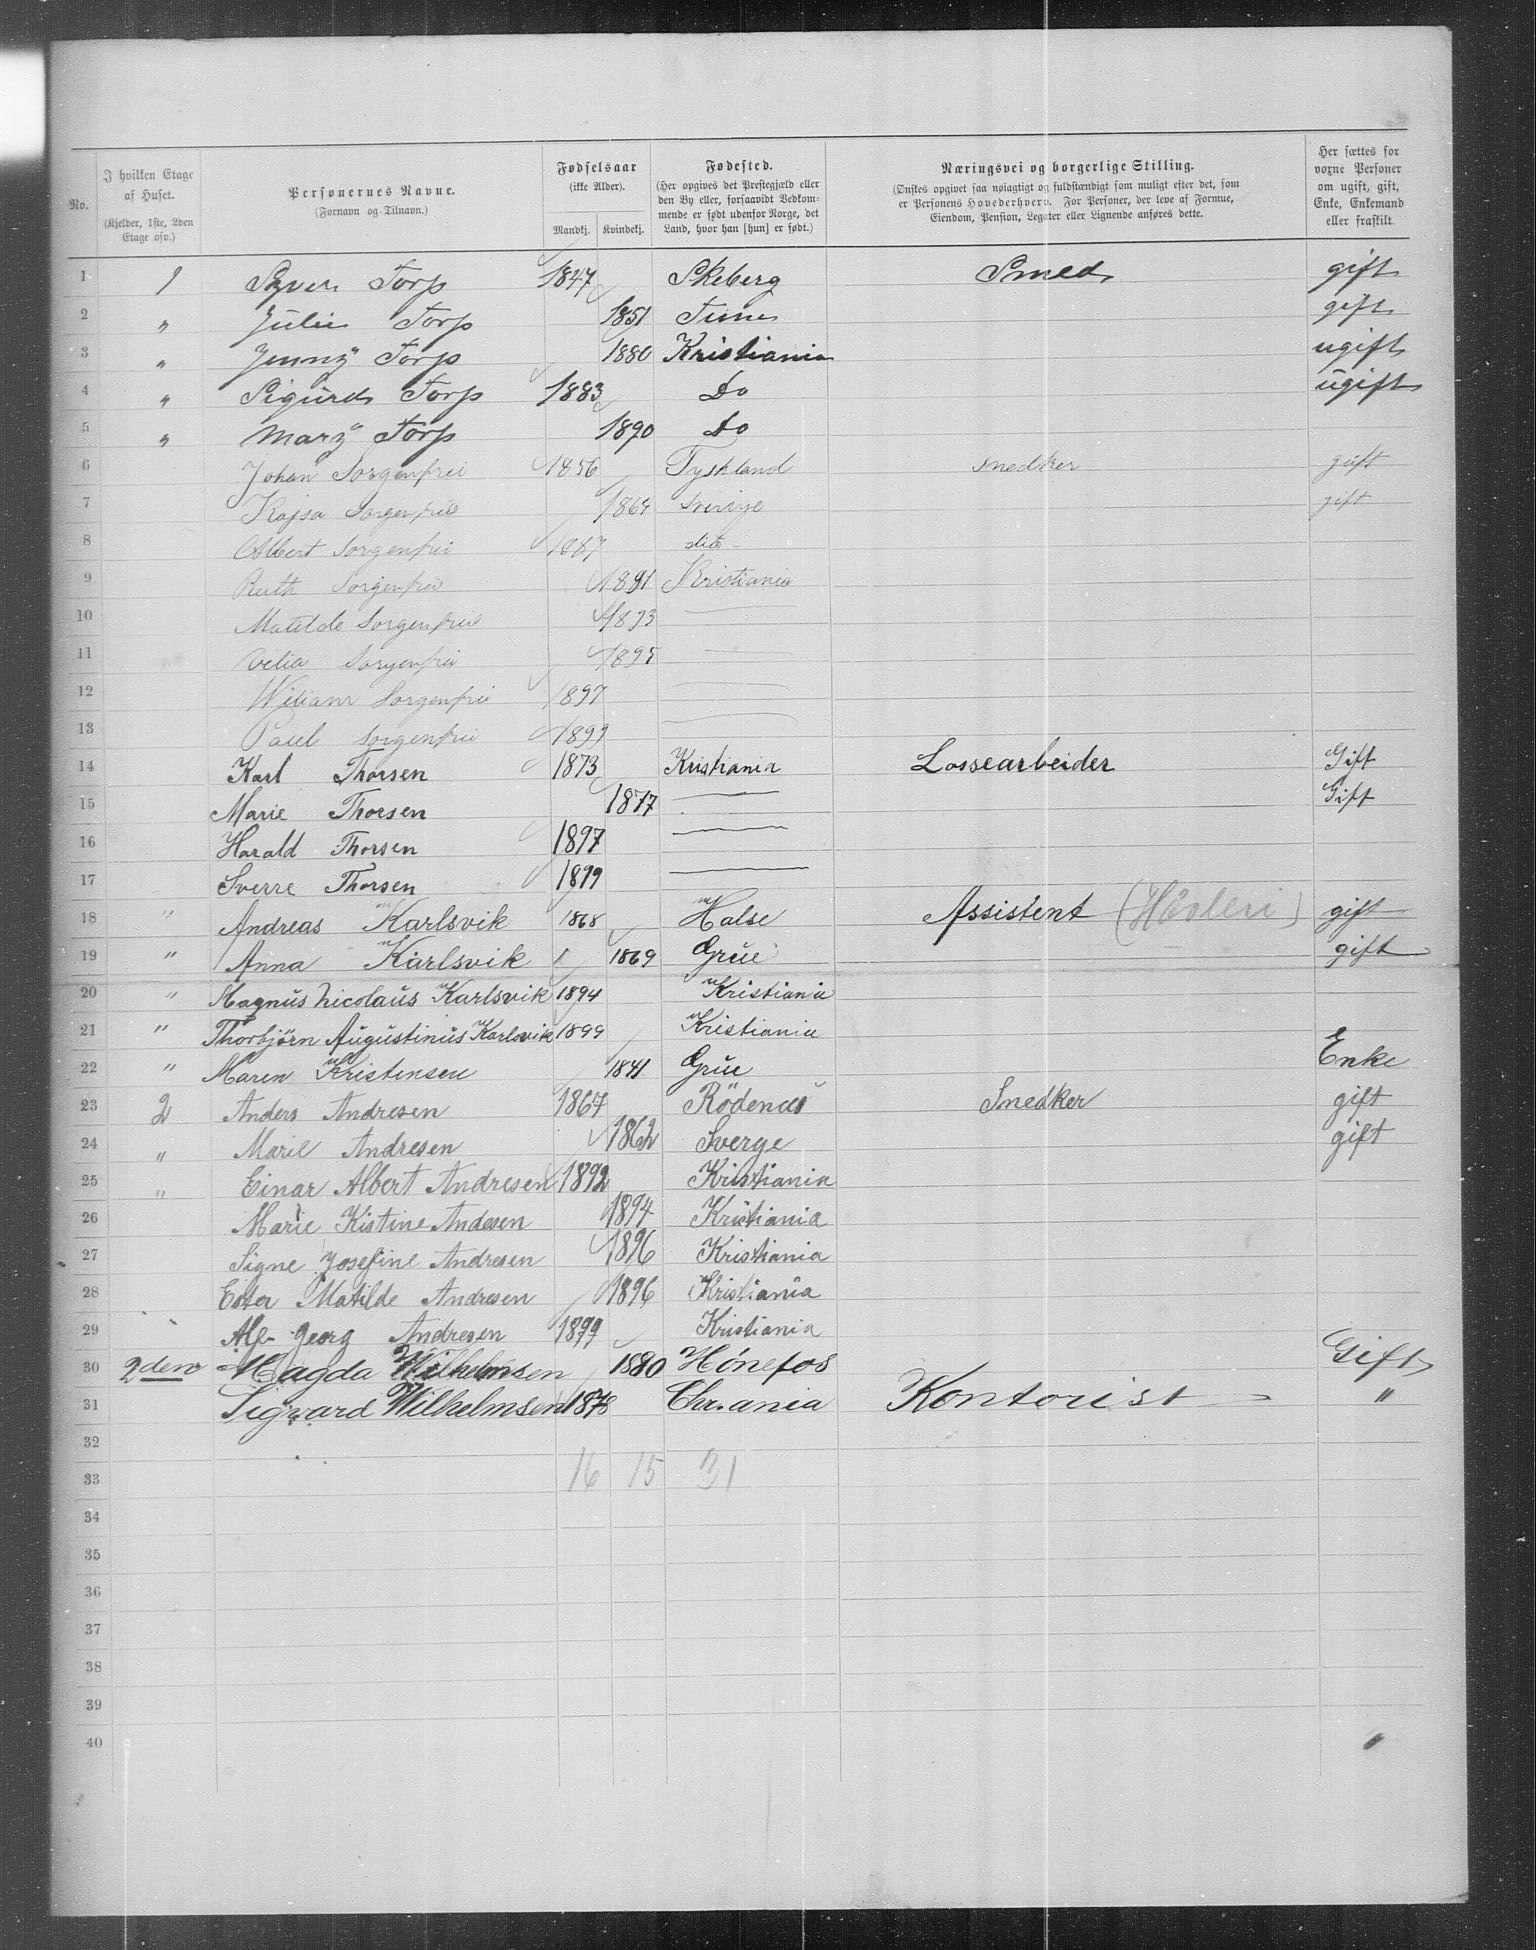 No. | I hvilken Etage af Huset. (Kjelder, 1ste, 2den Etage osv.) | Personernes Navne. (Fornavn og Tilnavn.) | Fødselsaar (ikke Alder). Mandkj. Kvindekj. | Fødested. (Her opgives det Prestegjæld eller den By eller, forsaavidt Vedkommende er født udenfor Norge, det Land, hvor han [hun] er født.) | Næringsvei og borgerlige Stilling. (Ønskes opgivet saa nøiagtigt og fuldstændigt som muligt efter det, som er Personens Hovederhverv. For Personer, der leve af Formue, Eiendom, Pension, Legater eller Lignende anføres dette. | Her sættes for voxne Personer om ugift, gift, Enke, Enkemand eller fraskilt.
1 1 Syver Torp 1847 Skeberg Smed gift
2 " Julie Torp 1851 Tune gift
3 " Jenny Torp 1880 Kristiania ugift
4 " Sigurd Torp 1883 Do ugift
5 " Mary Torp 1890 Do
6 Johan Sorgenfrei 1856 Tyskland snedker gift
7 Kajsa Sorgenfrei 1864 Sverige gift
8 Albert Sorgenfrei 1887 dito
9 Ruth Sorgenfrei 1891 Kristiania
10 Matilde Sorgenfrei 1893 —
11 Vilia Sorgenfrei 1895 —
12 Wiliam Sorgenfrei 1897 —
13 Paul Sorgenfrei 1899 —
14 Karl Thorsen 1873 Kristiania Lossearbeider Gift
15 Marie Thorsen 1877 — Gift
16 Harald Thorsen 1897 —
17 Sverre Thorsen 1899 —
18 " Andreas Karlsvik 1868 Halse Assistent (Høvleri) gift
19 " Anna Karlsvik 1869 Grue gift
20 " Magnus Nicolaus Karlsvik 1894 Kristiania
21 " Thorbjörn Augustinus Karlsvik 1899 Kristiania
22 " Maren Kristensen 1841 Grue Enke
23 2 Anders Andresen 1867 Rödenes Snedker gift
24 " Marie Andresen 1862 Sverge gift
25 " Einar Albert Andresen 1892 Kristiania
26 Marie Kistine Andesen 1894 Kristiania
27 Signe Josefine Andresen 1896 Kristiania
28 Ester Matilde Andresen 1896 Kristiania
29 Alf Georg Andresen 1899 Kristiania
30 2den Magda Wilhelmsen 1880 Hónefos Gift
31 Sigvard Wilhelmsen 1878 Chr.ania Kontorist "
32
33 16 15 31
34
35
36
37
38
39
40